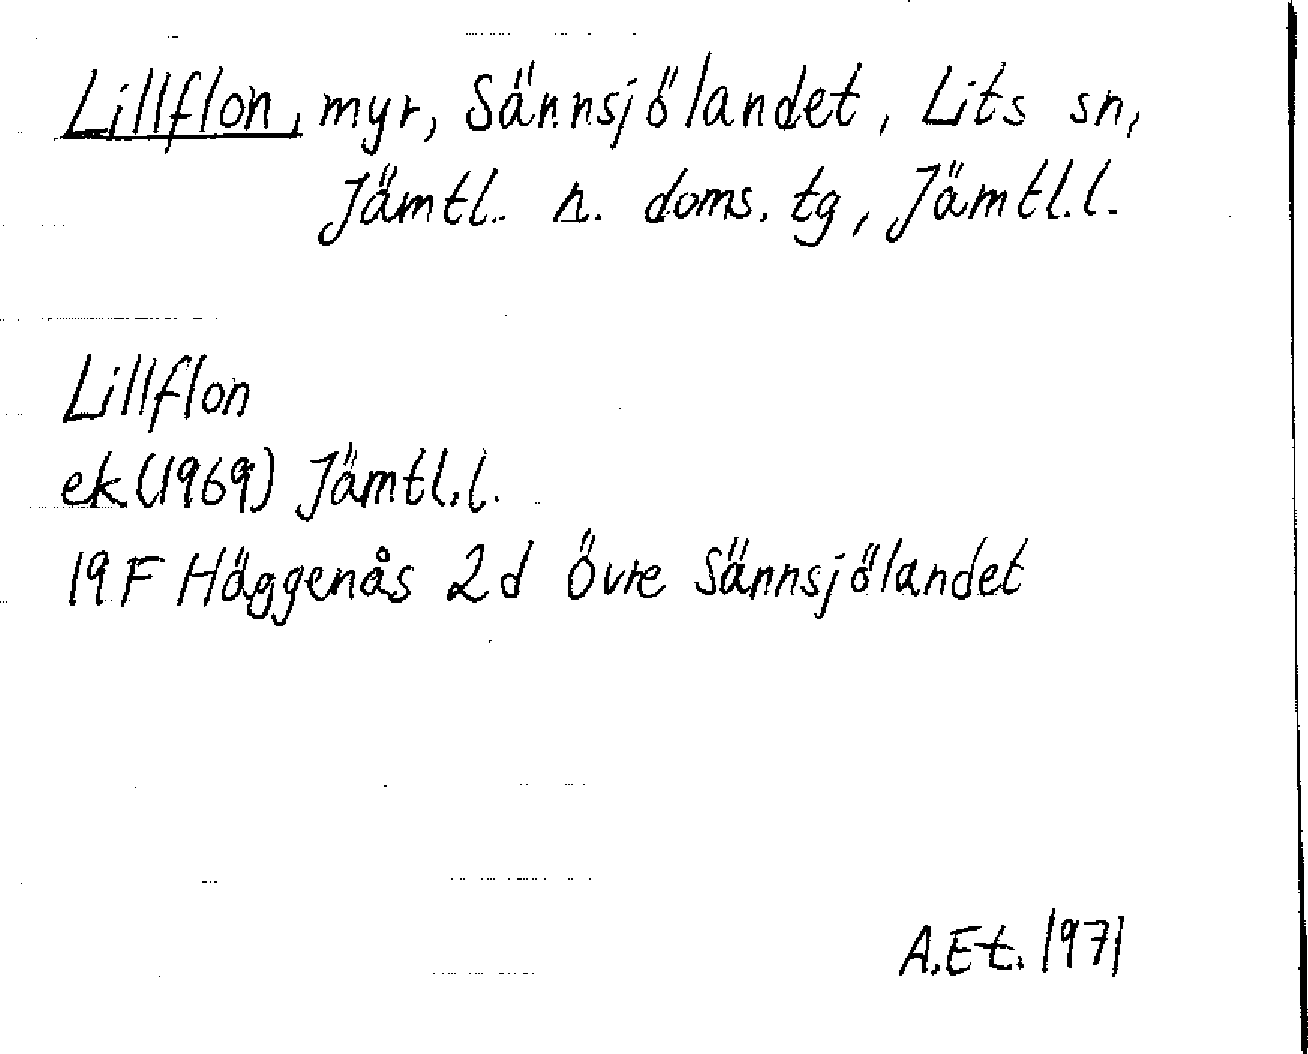 Lillflon, myr, Sännsjölandet, Lits sn,
Jämtl. n. doms. tg, Jämtl.l.
Lillflon
ek (1969) Jämtl.l.
19F Häggenås 2d Övre Sännsjölandet
A.Et. 1971